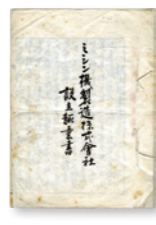 ミシン機製造株式會社
設立趣意書